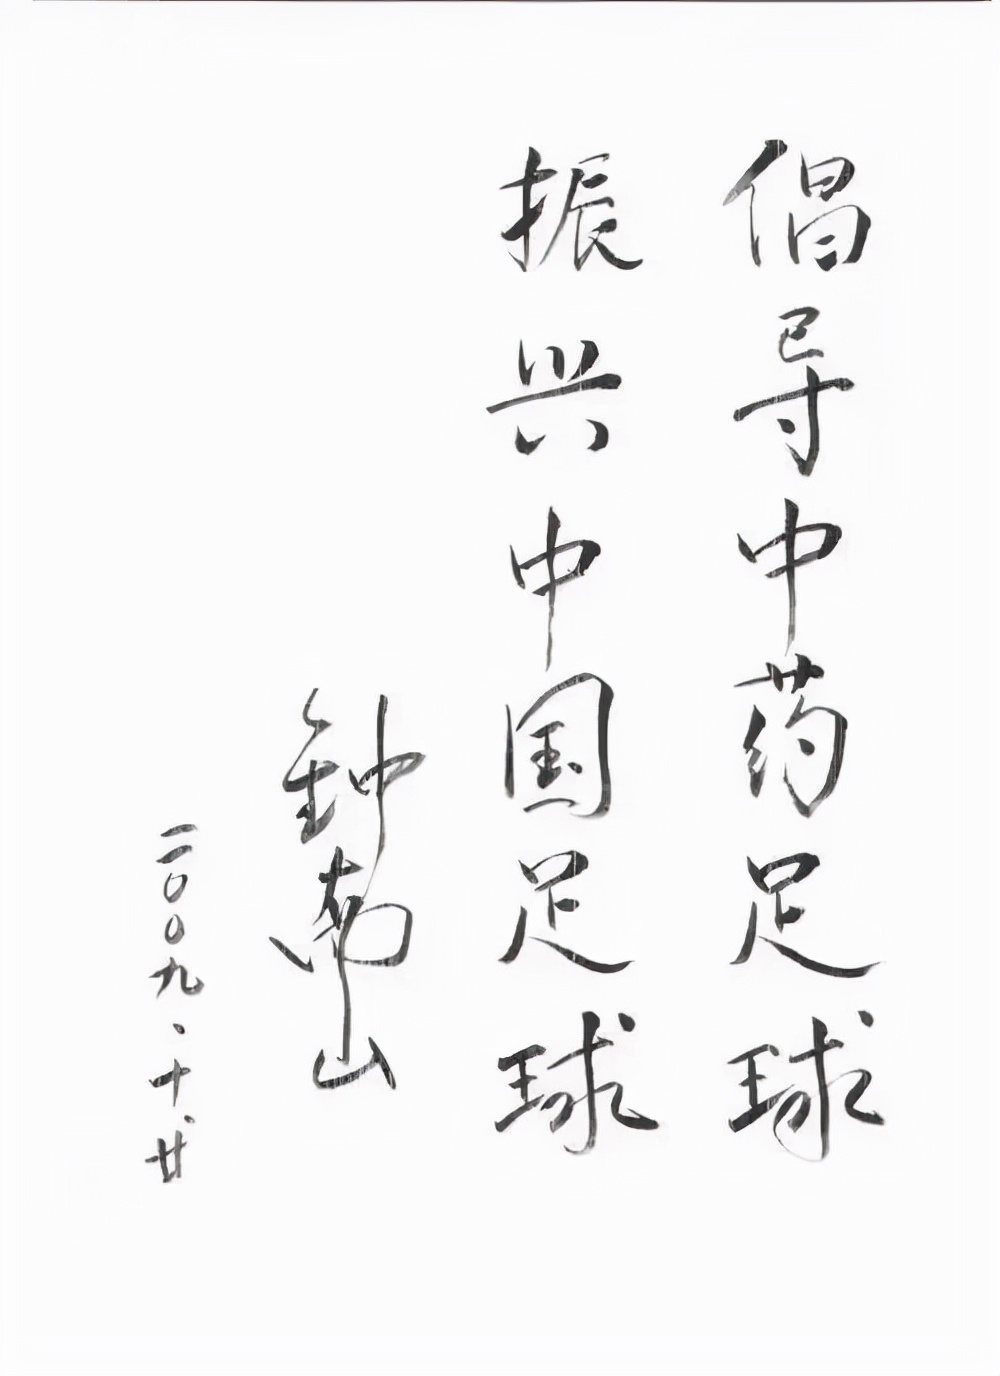 倡导中药足球
振兴中国足球
钟南山
二〇〇九.十.廿